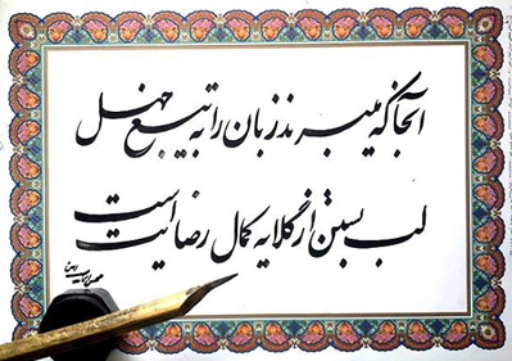 آنجا که میبرند زبان را به تیغ جهل
لب بستن از گلایه کمال رضایت است